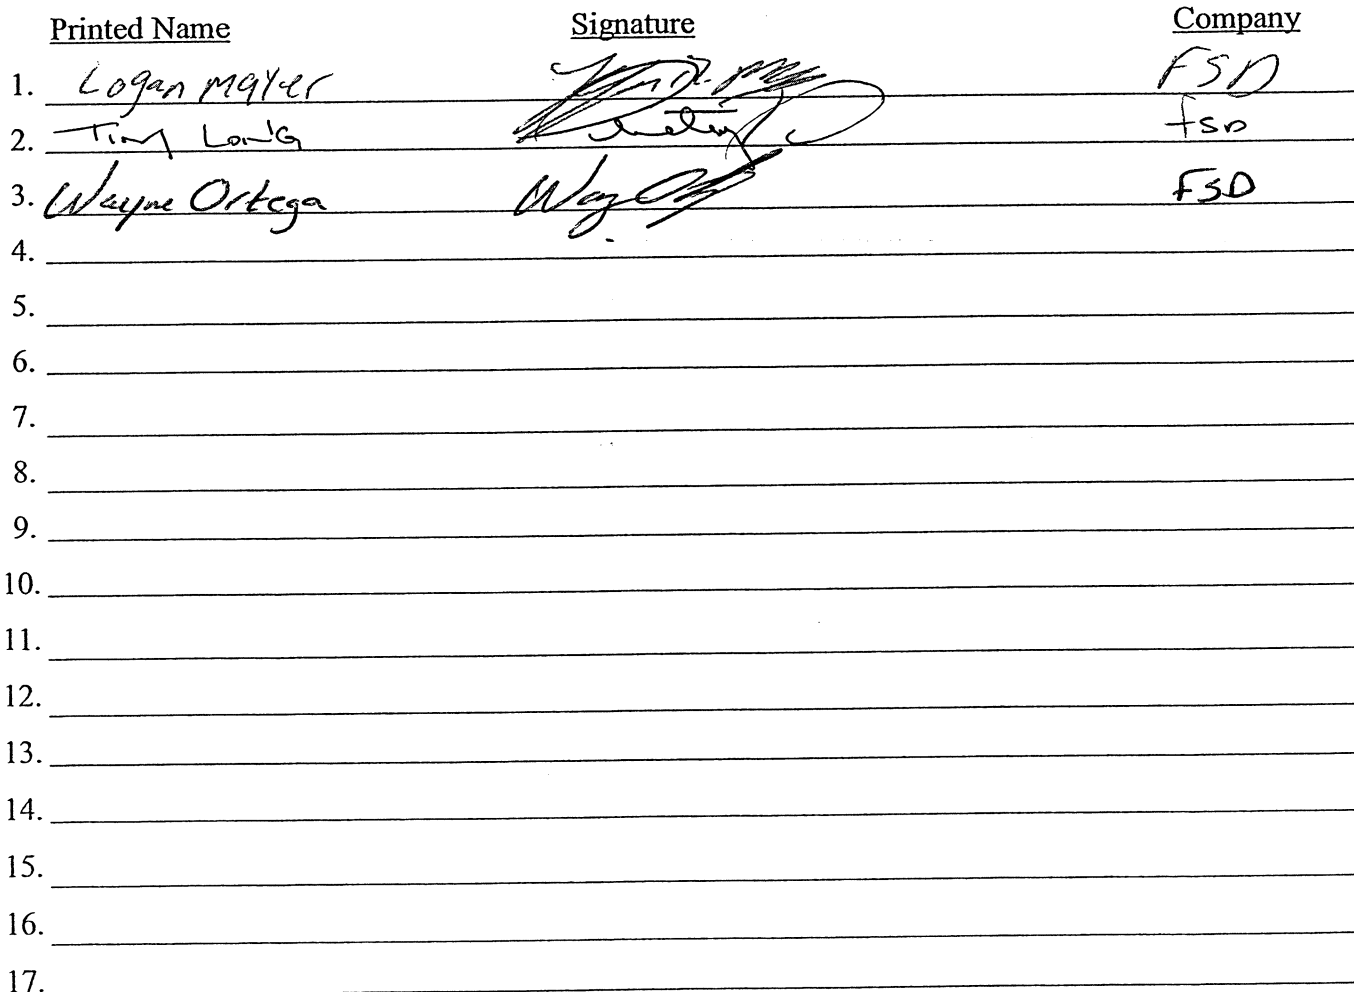 Printed Name Signature Company
1. Logan Mayer FSD
2. Tim Long FSD
3. Wayne Ortega FSD
4.
5.
6.
7.
8.
9.
10.
11.
12.
13.
14.
15.
16.
17.